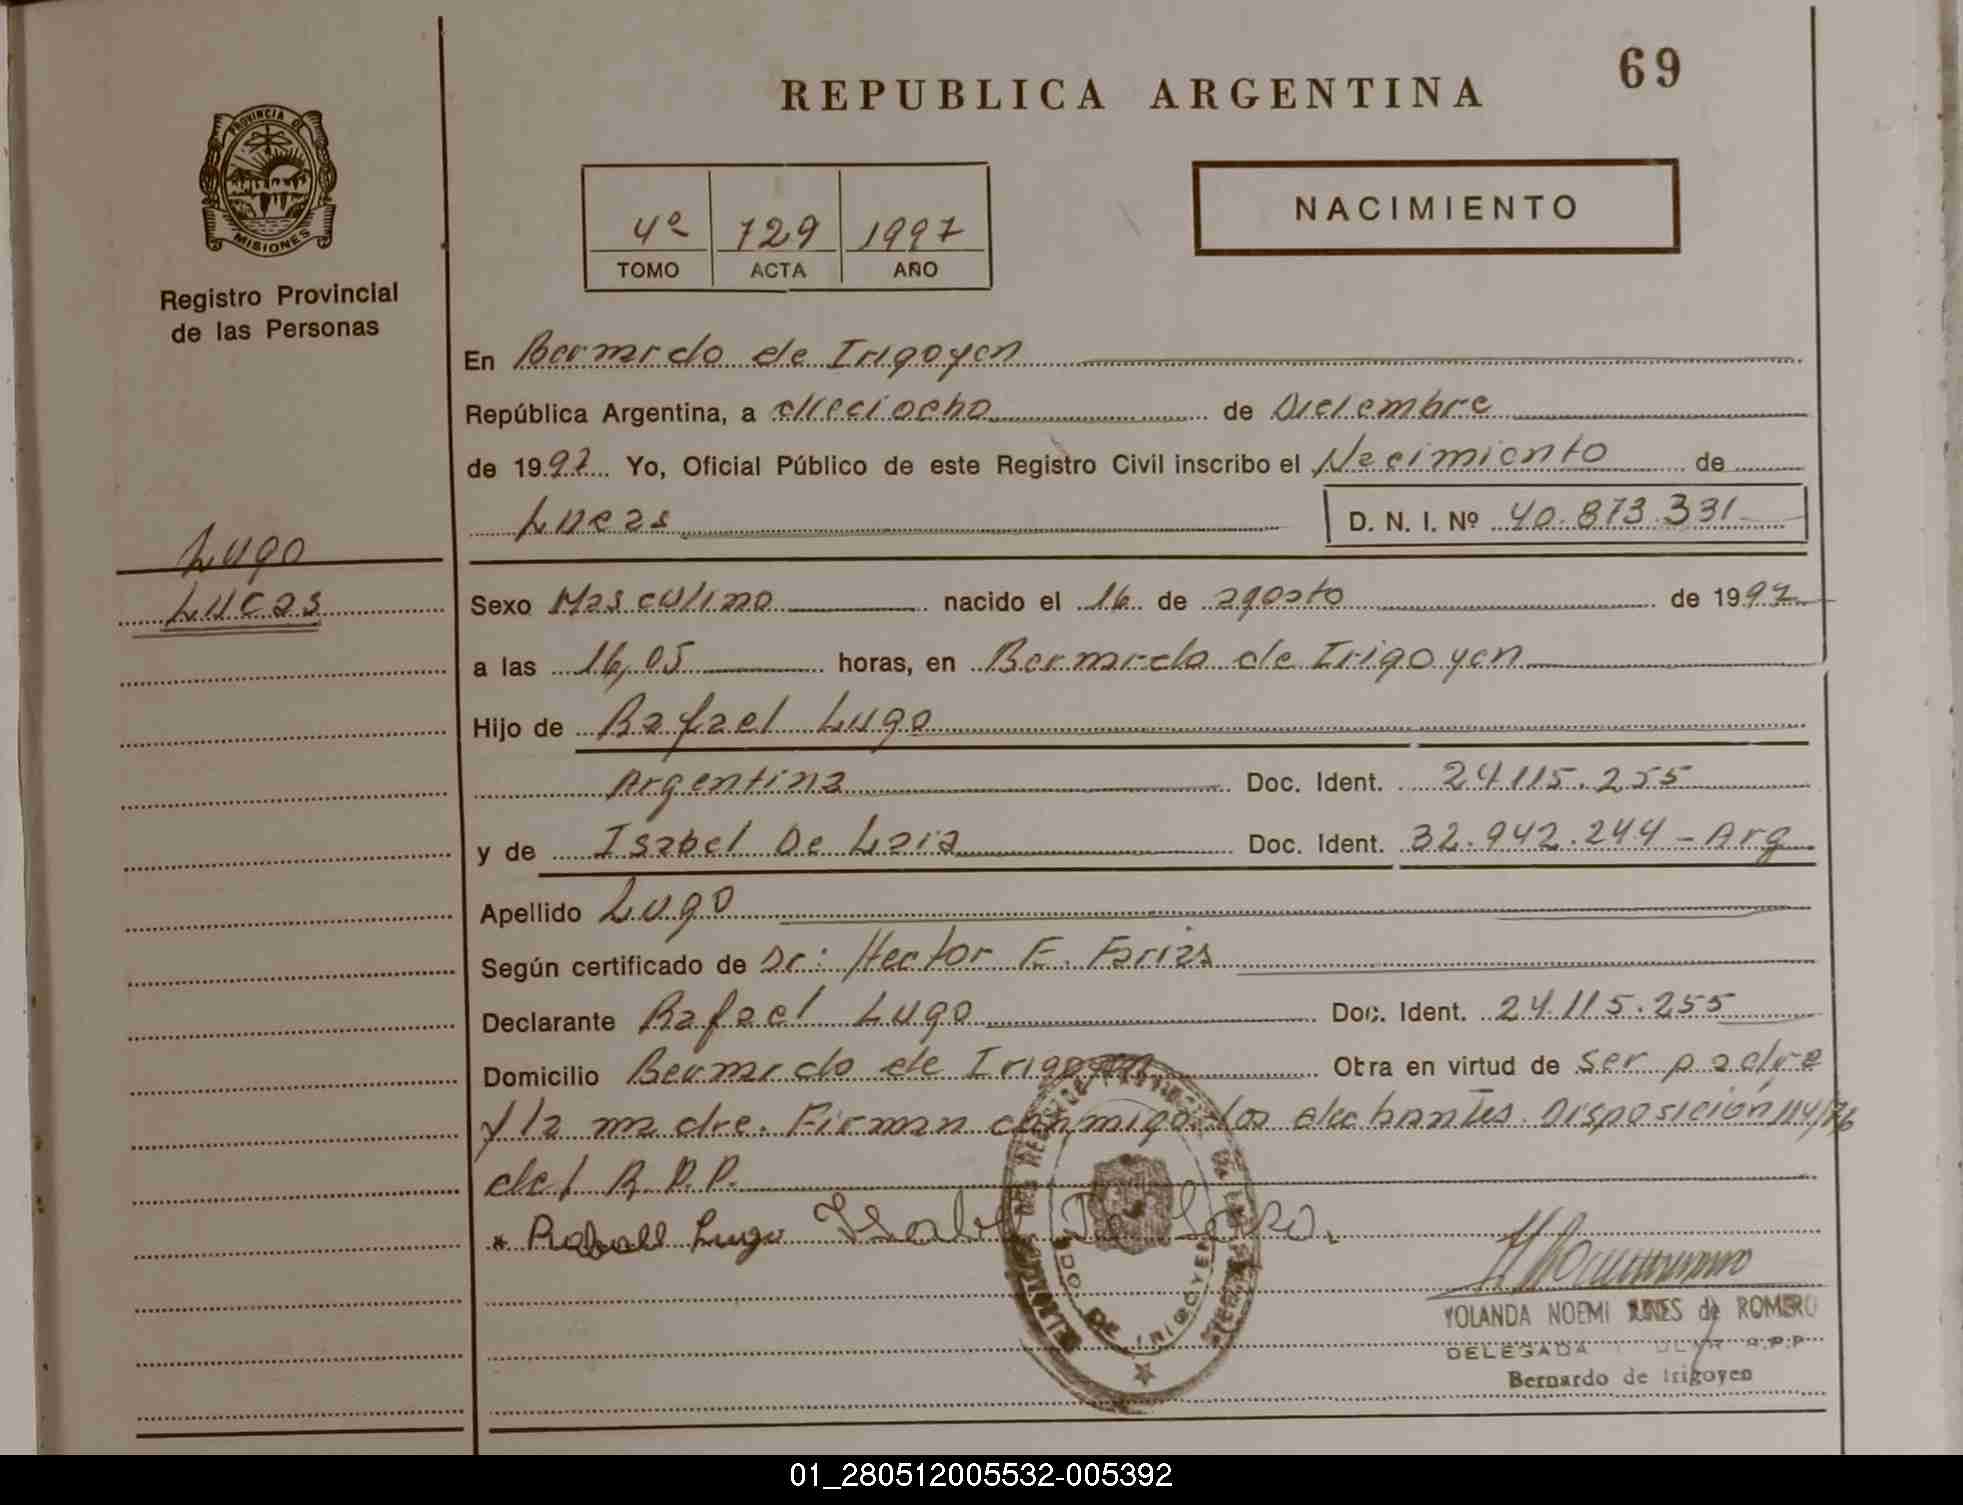 69
REPUBLICA ARGENTINA
PROVINCIA DE
MISIONES
Registro Provincial
de las Personas
4º 729 1997
TOMO ACTA AÑO
NACIMIENTO
En Bernardo de Irigoyen
República Argentina, a dieciocho de Diciembre
de 1997 Yo, Oficial Público de este Registro Civil inscribo el Nacimiento de
Lucas D. N. I. Nº 40.873.331
Lugo
Lucas
Sexo Masculino nacido el 16 de agosto de 1997
a las 16,05 horas, en Bernardo de Irigoyen
Hijo de Rafael Lugo
Argentina Doc. Ident. 24.115.255
y de Isabel De Lara Doc. Ident. 32.942.244 - Arg
Apellido Lugo
Según certificado de Dr: Hector E. Farias
Declarante Rafael Lugo Doc. Ident. 24.115.255
Domicilio Bernardo de Irigoyen Obra en virtud de ser padre
y la madre. Firman conmigo los Disposición 114/76
del R.P.P.
Rafaell Lugo Isabel De Lara.
DE IRIGOYEN
YOLANDA NOEMI de ROMERO
DELEGADA R.P.P
Bernardo de Irigoyen
01_280512005532-005392